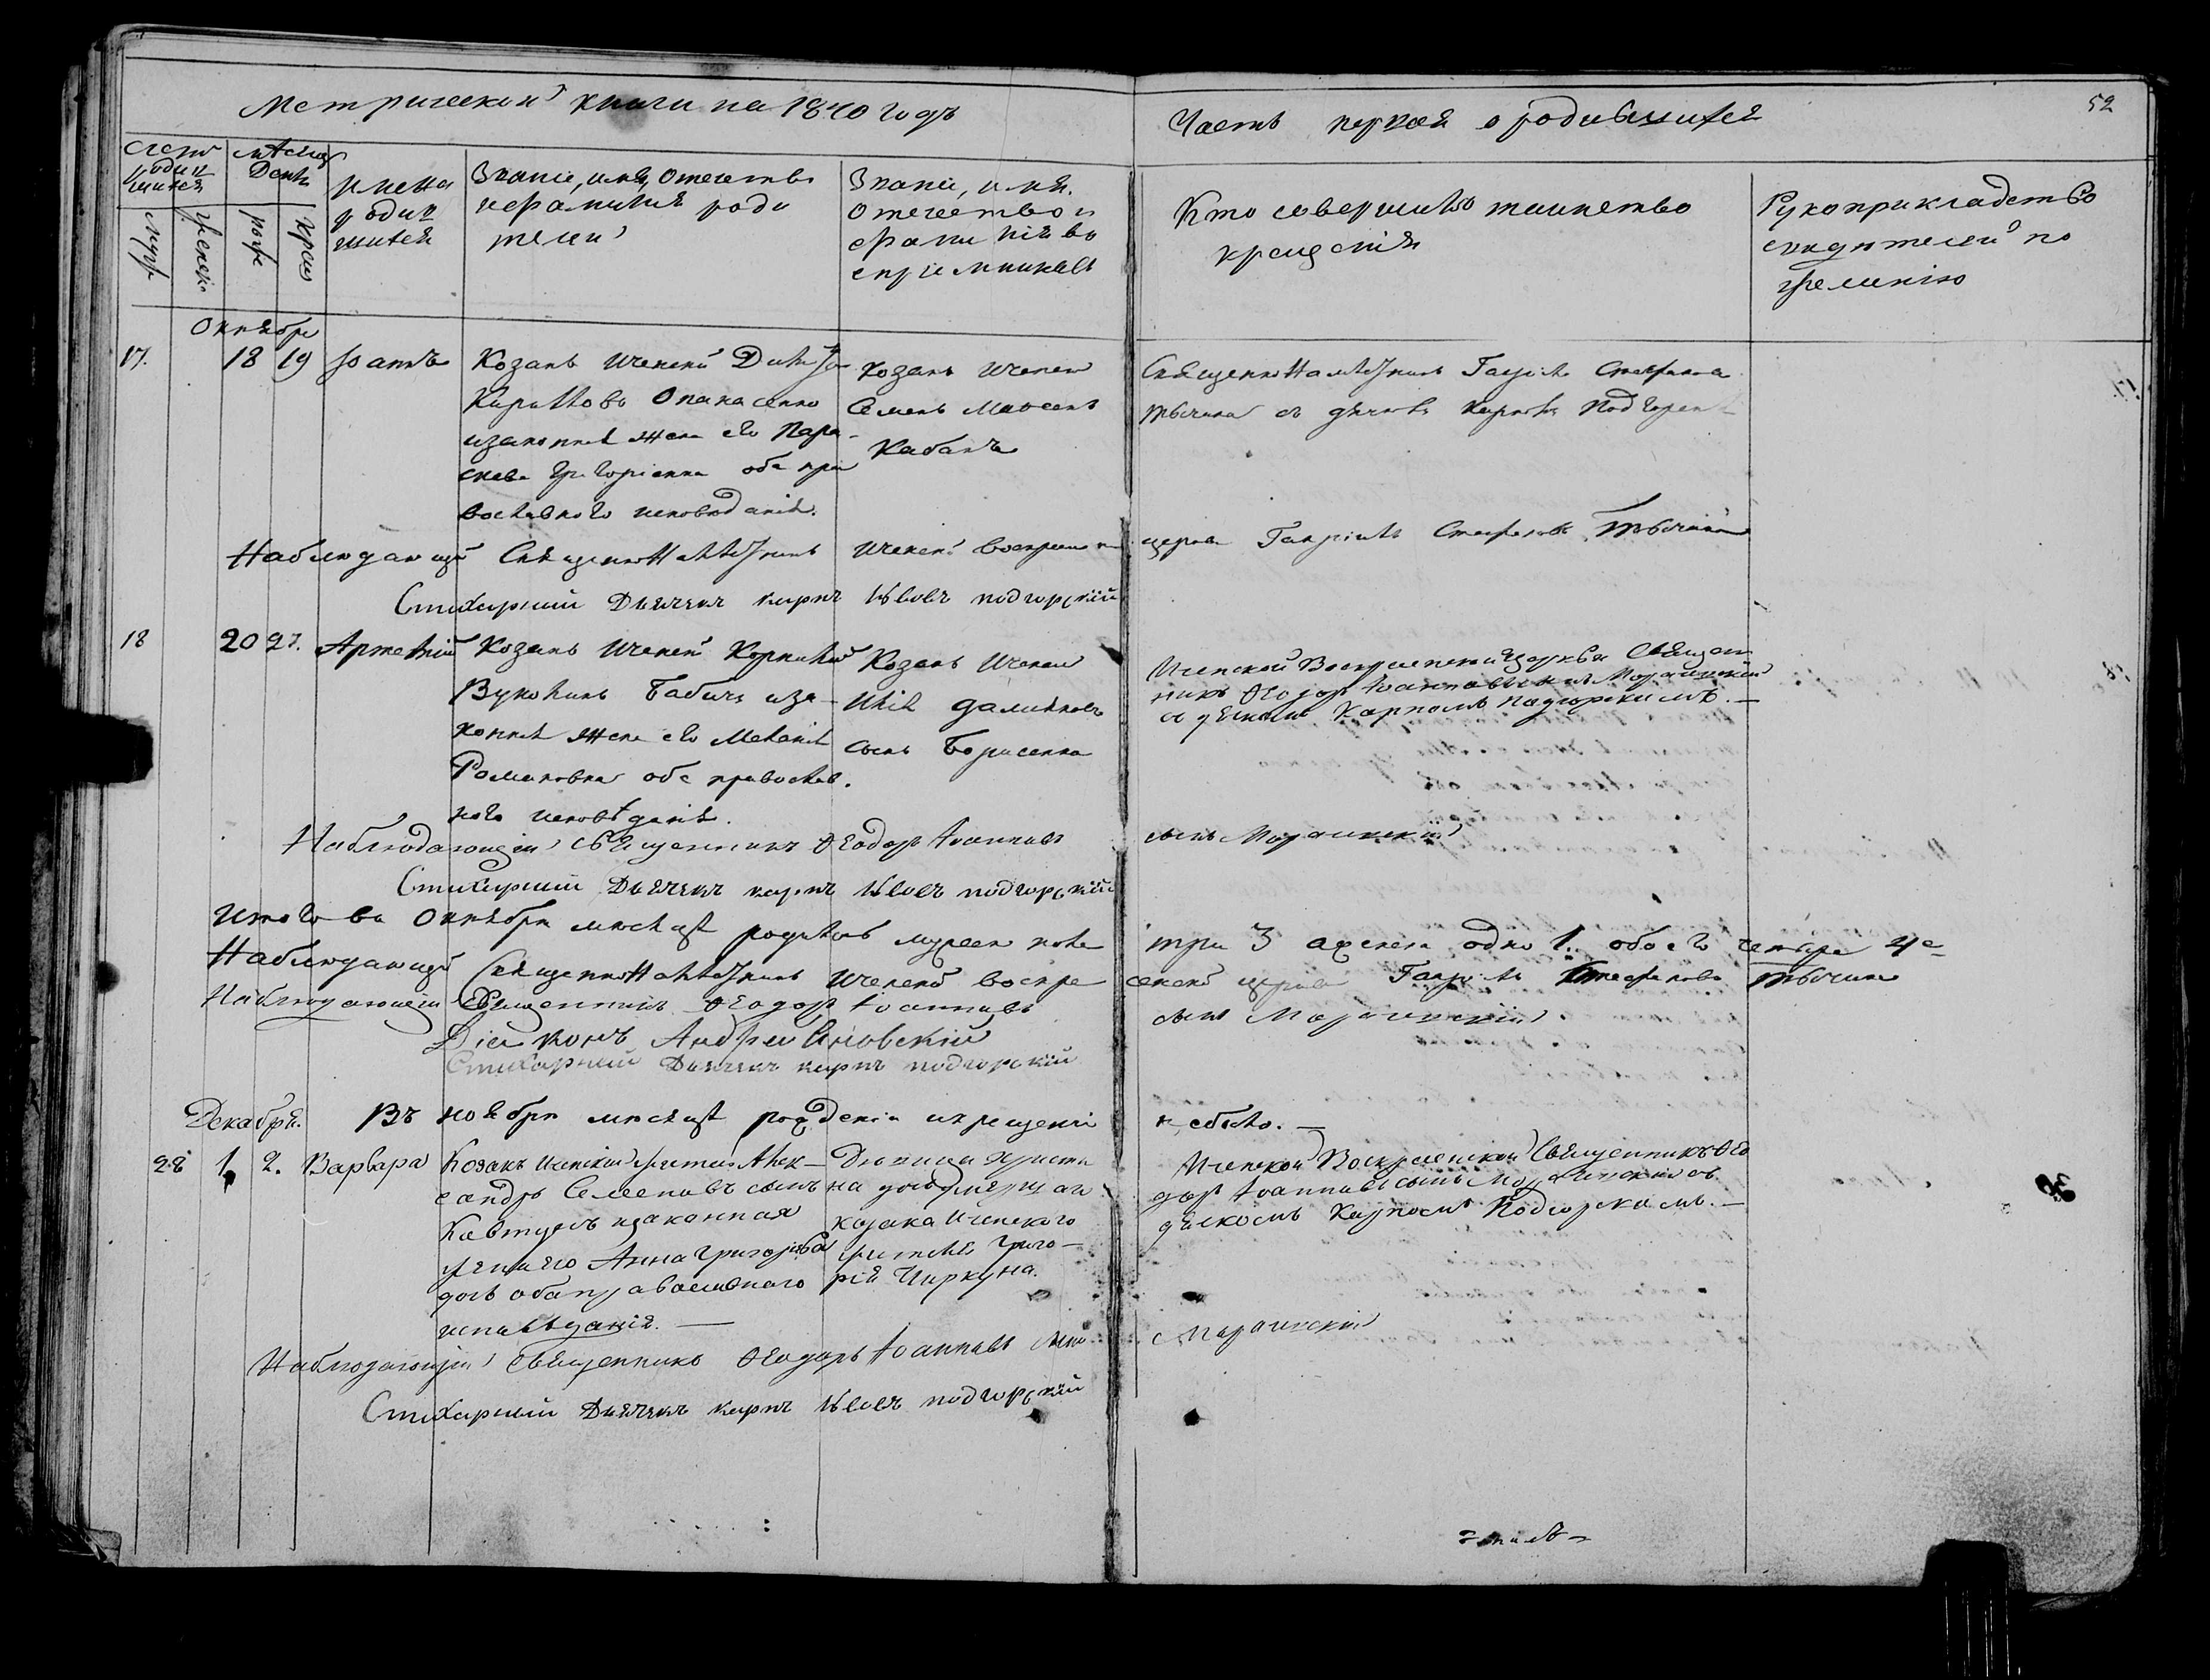 Метрической книги на 1840 годъ
Часть первая о родившихся
52
Счетъ родившихся
мѣсяцъ День
муж
женск
рож
крещ
имена родившихся
Званіе, имя, отечество
и фамилія роди
телей
Званіе, имя.
отечество и
фамилія во
спріемниковъ
Кто совершилъ таинство
крещенія
Рукоприкладство
свидѣтелей по
желанію
Октября
17. 18 19 Іоаннъ
Козакъ Иченскій
Кириловъ Опанасенко
изаконная жена его Пара-
скева Григоріевна оба пра
вославнаго исповѣданія.
Козакъ Иченскій
Семенъ
Кабанъ
Священнонамѣстникъ Гавріилъ Стефановъ
съ дячкомъ Карпомъ Подгорск
Наблюдающій Священнонамѣстникъ Иченской воскресенской церкви Гавріилъ Стефановъ
Стихарный Дьячекъ карпъ Іовлевъ подгорскій
18 20 27. Артемій
Козакъ Иченскій Корнилій
Бабичъ иза-
конная жена его Меланія
Романовна оба православ.
наго исповѣданія.
Козакъ Иченскій
Илія
сынъ Борисенко
Иченской Воскресенской церкви Священ
никъ Ѳеодоръ Іоанновъ сынъ
съ дьякомъ Карпомъ Подгорскимъ. —
Наблюдающій Священникъ Ѳеодоръ Іоанновъ сынъ
Стихарный Дьячекъ карпъ Іовлевъ подгорскій
Итого въ Октябрѣ мѣсяцѣ родилось мужеска пола три 3 а женска одно 1. обоего четыре 4е
Наблюдающій Священнонамѣстникъ Иченской воскресенской церкви Гавріилъ Стефановъ
Наблюдающій Священникъ Ѳеодоръ Іоанновъ сынъ
Діаконъ Андрей Яновскій
Стихарный Дьячекъ карпъ подгорскій
Декабря. Въ ноябрѣ мѣсяцѣ рожденій и крещеній не было. —
28 1. 2. Варвара
Козакъ Иченскій житель Алек-
сандръ Семеновъ сынъ
Ковтунъ изаконная
жена его Анна Григорьева
дочь оба православнаго
исповѣданія. —
Дѣвица Христи
на дочь умершаго
козака Иченского
жителя Григо-
рія Чиркуна.
Иченской Воскресенской Священникъ Ѳео
доръ Іоанновъ сынъ съ
дьякомъ Карпомъ Подгорскимъ. —
Наблюдающій Священникъ Ѳеодоръ Іоанновъ сынъ
Стихарный Дьячекъ карпъ Іовлевъ подгорскій